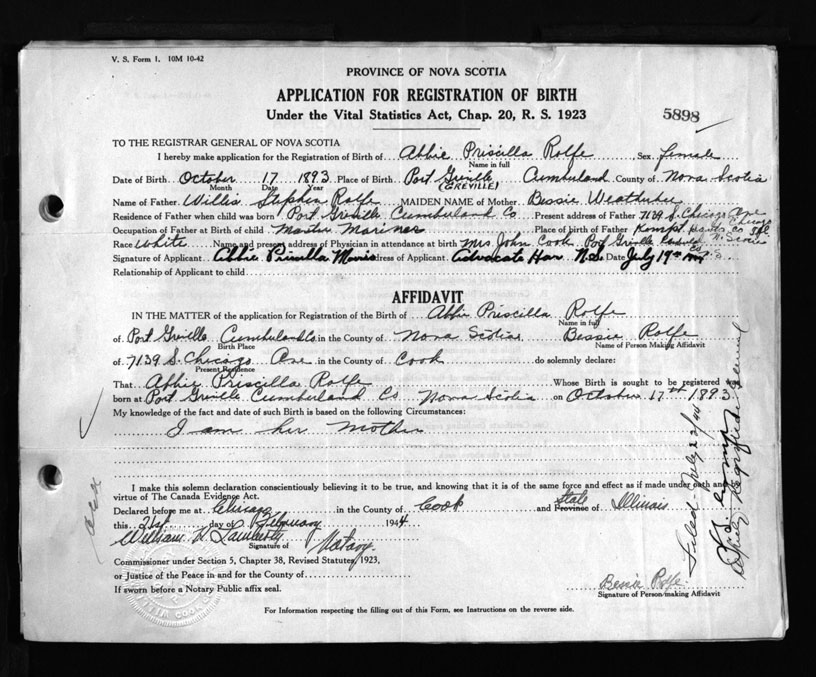 V. S. Form 1. 10M 10-42
PROVINCE OF NOVA SCOTIA
APPLICATION FOR REGISTRATION OF BIRTH
Under the Vital Statistics Act, Chap. 20, R. S. 1923
5898
TO THE REGISTRAR GENERAL OF NOVA SCOTIA
I hereby make application for the Registration of Birth of Abbie Priscilla Rolfe, Sex female
Name in full
Date of Birth October 17 1893 Place of Birth Port Greville Cumberland County of Nova Scotia
Month Date Year (GREVILLE)
Name of Father Willis Stephen Rolfe MAIDEN NAME of Mother Bessie
Residence of Father when child was born Port Greville Cumberland Co Present address of Father 7139 S. Chicago Ave Chicago
Occupation of Father at Birth of child Master Mariner Place of birth of Father Kempt Hants Co Ill
Race White Name and present address of Physician in attendance at birth Mrs John Cook Port Greville N. Scotia
Signature of Applicant Abbie Priscilla Address of Applicant Advocate Har N.S. Date July 19th
Relationship of Applicant to child
AFFIDAVIT
IN THE MATTER of the application for Registration of the Birth of Abbie Priscilla Rolfe
Name in full
of Port Greville Cumberland Co. in the County of Nova Scotia Bessie Rolfe
Birth Place Name of Person Making Affidavit
of 7139 S. Chicago Ave in the County of Cook do solemnly declare:
Present Residence
That Abbie Priscilla Rolfe Whose Birth is sought to be registered was
born at Port Greville Cumberland Co Nova Scotia on October 17th 1893
My knowledge of the fact and date of such Birth is based on the following Circumstances:
I am her Mother
I make this solemn declaration conscientiously believing it to be true, and knowing that it is of the same force and effect as if made under oath and
virtue of The Canada Evidence Act.
Declared before me at Chicago in the County of Cook and State Province of Illinois
this 21st day of February 1944
William Notary
Signature of
Commissioner under Section 5, Chapter 38, Revised Statutes, 1923,
or Justice of the Peace in and for the County of
If sworn before a Notary Public affix seal.
Bessie Rolfe
Signature of Person making Affidavit
For Information respecting the filling out of this Form, see Instructions on the reverse side.
Filed July 22/44
Deputy Registrar General